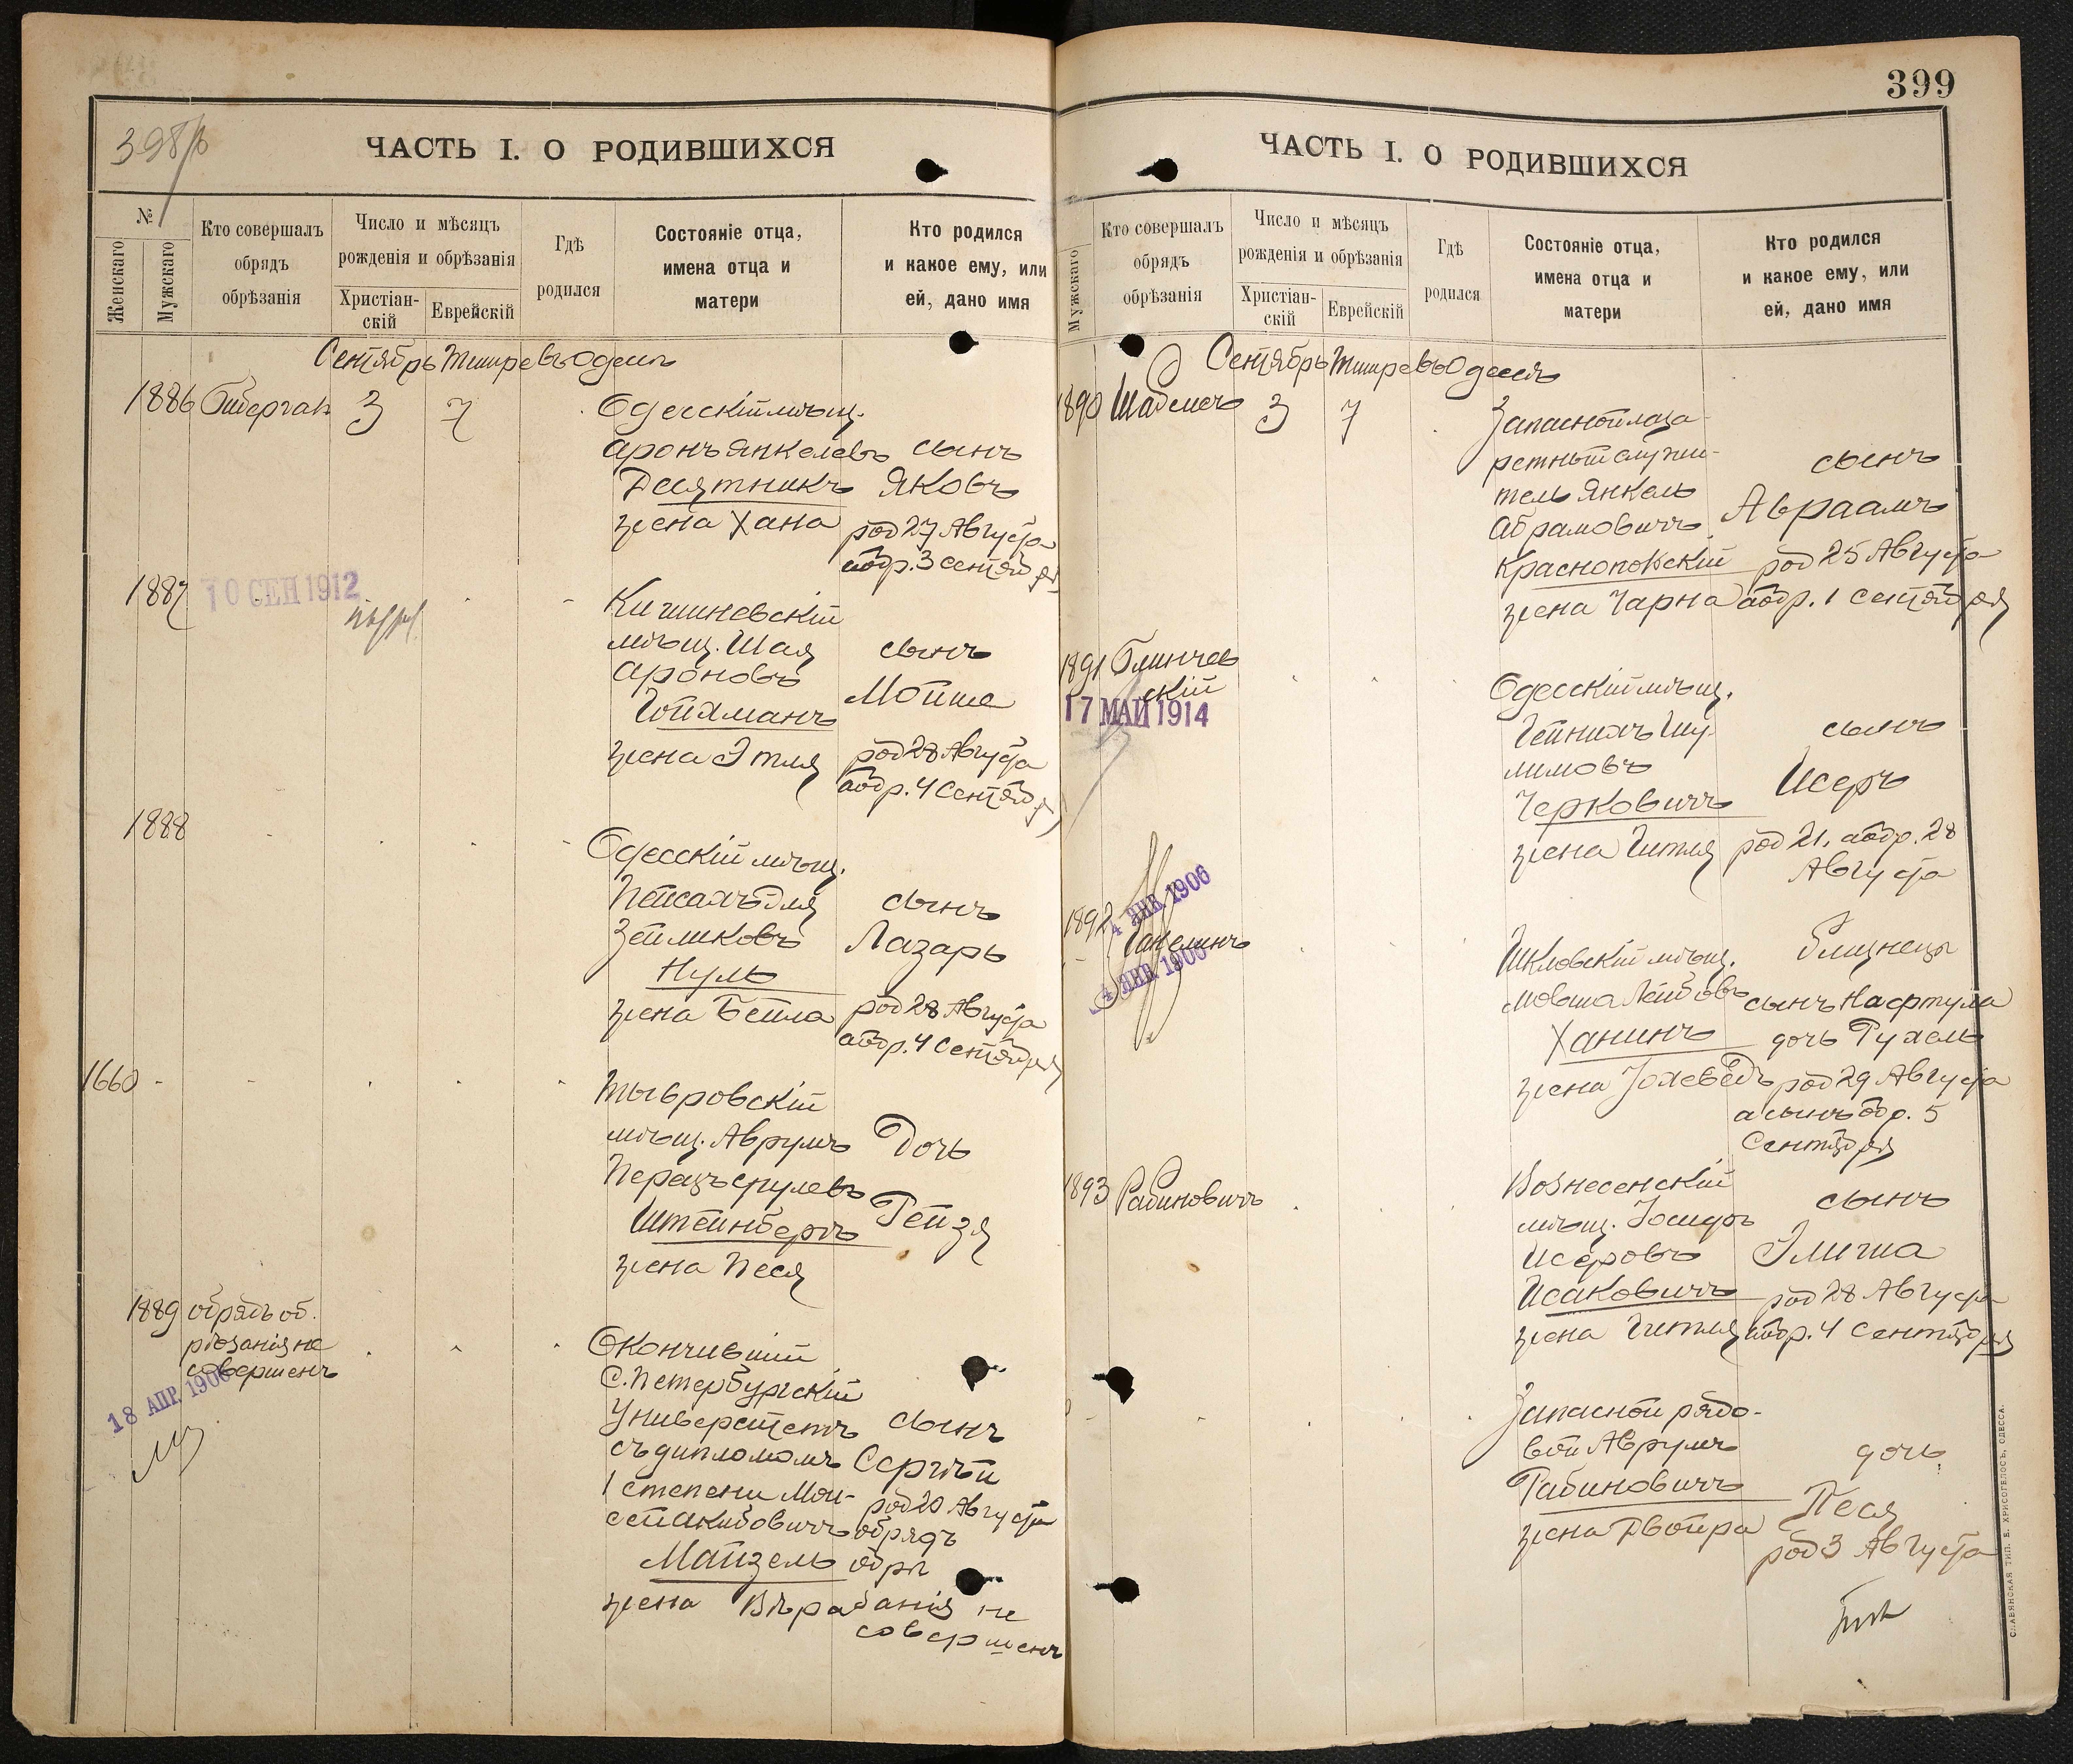 398
ЧАСТЬ I. О РОДИВШИХСЯ
№
Женскаго
Мужскаго
Кто совершалъ
обрядъ
обрѣзанія
Число и мѣсяцъ
рожденія и обрѣзанія
Христіан-
скій
Еврейскій
Гдѣ
родился
Состояніе отца,
имена отца и
матери
Кто родился
и какое ему, или
ей, дано имя
Сентябрь Тишре въ Одессѣ
1886
3 7
Одесскій мѣщ.
Аронъ Янкелевъ сынъ
Десятникъ Яковъ
жена Хана род 27 Августа
обр. 3 сентября
1887
10 СЕН 1912
Кишиневскій
мѣщ. Шая сынъ
Ароновъ
Мойше
Гойхманъ
жена Этля род 28 Августа
обр. 4 Сентября
1888
Одесскій мѣщ.
Пейсахъ Эля сынъ
Зейликовъ Лазарь
Нуль
жена Бейла род 28 Августа
обр. 4 Сентября
1660
Тывровскій
мѣщ. Аврумъ Дочь
Перецъ Срулевъ
Штейнбергъ Рейзя
жена Песя
1889 обрядъ об.
рѣзанія не
совершенъ
18 АПР. 1906
Окончившій
С. Петербургскій
Университетъ сынъ
съ дипломомъ Сергѣй
1 степени Мои-
сей Акибовичъ род 20 Августа
обрядъ
Майзель
жена Вѣра
не
совершенъ
399
ЧАСТЬ I. О РОДИВШИХСЯ
Мужскаго
Кто совершалъ
обрядъ
обрѣзанія
Число и мѣсяцъ
рожденія и обрѣзанія
Христіан-
скій
Еврейскій
Гдѣ
родился
Состояніе отца,
имена отца и
матери
Кто родился
и какое ему, или
ей, дано имя
Сентябрь Тишре въ Одессѣ
1890
3 7
Запасной лаза-
ретный служи-
тель Янкель сынъ
Абрамовичъ Авраамъ
Краснопольскій род 25 Августа
жена Чарна обр. 1 сентября
1891 Блинчев
скій
17 МАЙ 1914
Одесскій мѣщ.
Гейнихъ Шу-
лимовъ сынъ
Черковичъ Исеръ
жена Гитля род 21, обр. 28
Августа
4 ЯНВ. 1906
1892
4 ЯНВ. 1906
Шкловскій мѣщ. близнецы
Мовша Лейбовъ сынъ Нафтула
Ханинъ дочь Рухель
жена Іохеведъ род 29 Августа
а сынъ обр. 5
Сентября
1893 Рабиновичъ
Вознесенскій
мѣщ. Іосифъ сынъ
Исеровъ Элиша
Исаковичъ род 28 Августа
жена Гитля обр. 4 Сентября
Запасной рядо-
вой Аврумъ дочь
Рабиновичъ Песя
жена Двойра род 3 Августа
СЛАВЯНСКАЯ ТИП. Е. ХРИСОГЕЛОСЪ, ОДЕССА.